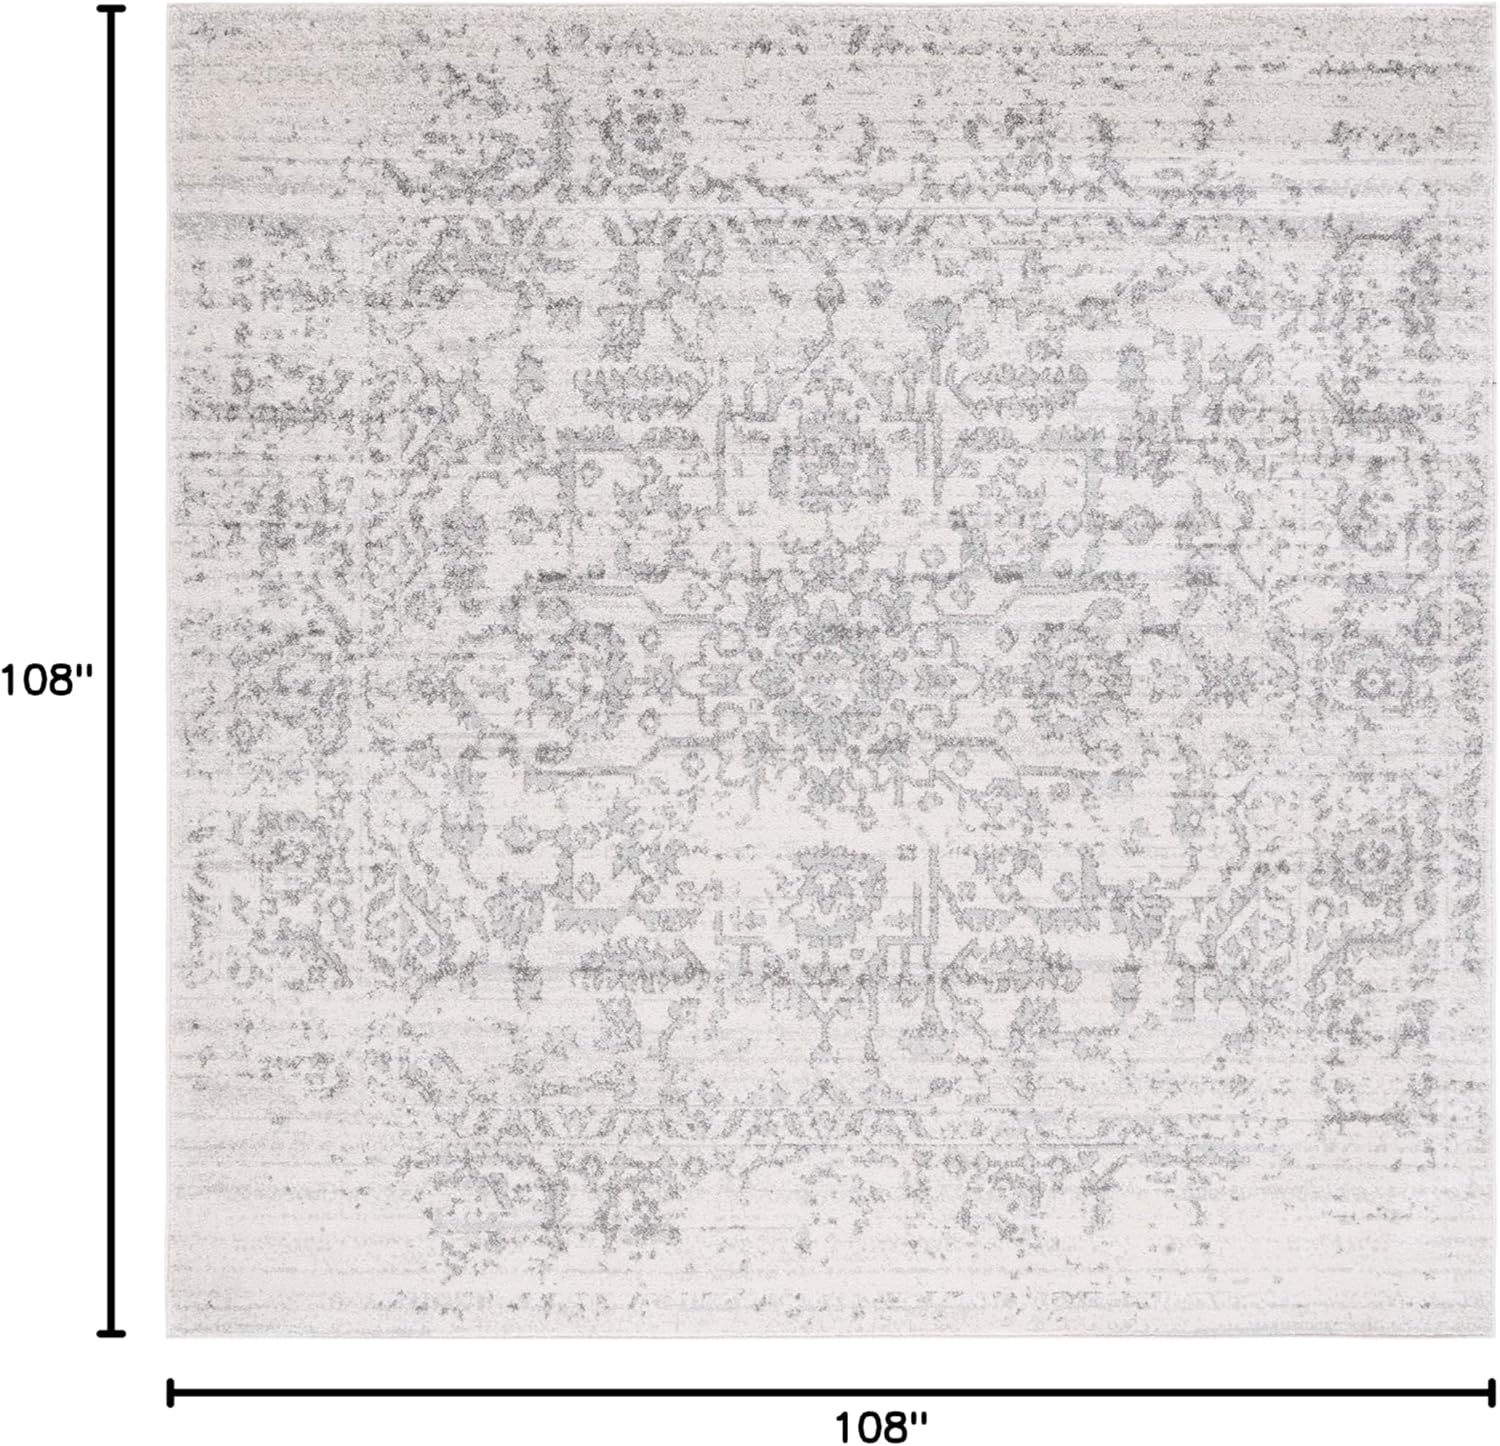 108"
108"